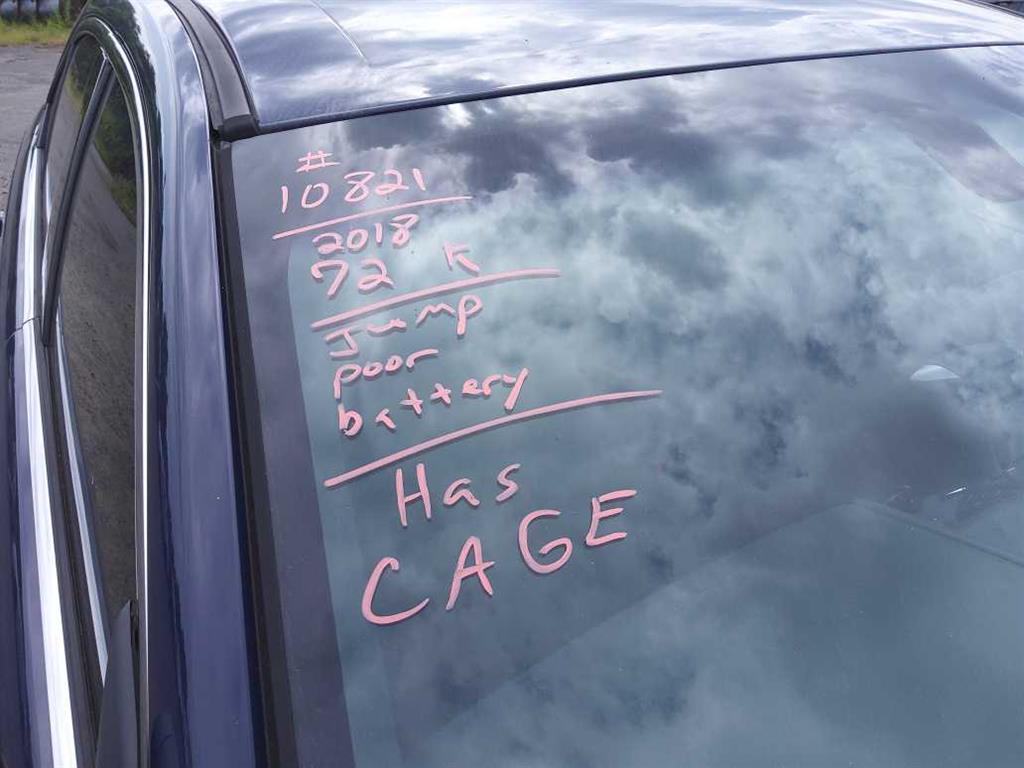 #
10821
2018
72 K
Jump
poor
battery
Has
CAGE